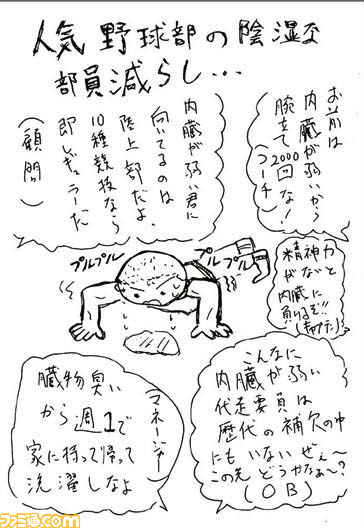 人気野球部の陰湿な
部員減らし…
お前は
内臓が弱いから
腕立て2000回な!
(コーチ)
内臓が弱い君に
向いてるのは
陸上部だよ。
10種競技なら
即レギュラーだ
(顧問)
プルプル
プルプル
精神力
がないと
内臓に
負けるぞ!!
こんなに
内臓が弱い
代走要員は
歴代の補欠の中
にもいないぜぇ〜
この先どうやなぁ〜?
(OB)
臓物臭い
から週1で
家に持って帰って
洗濯しなよ
(マネージャー)
ファミ通.com